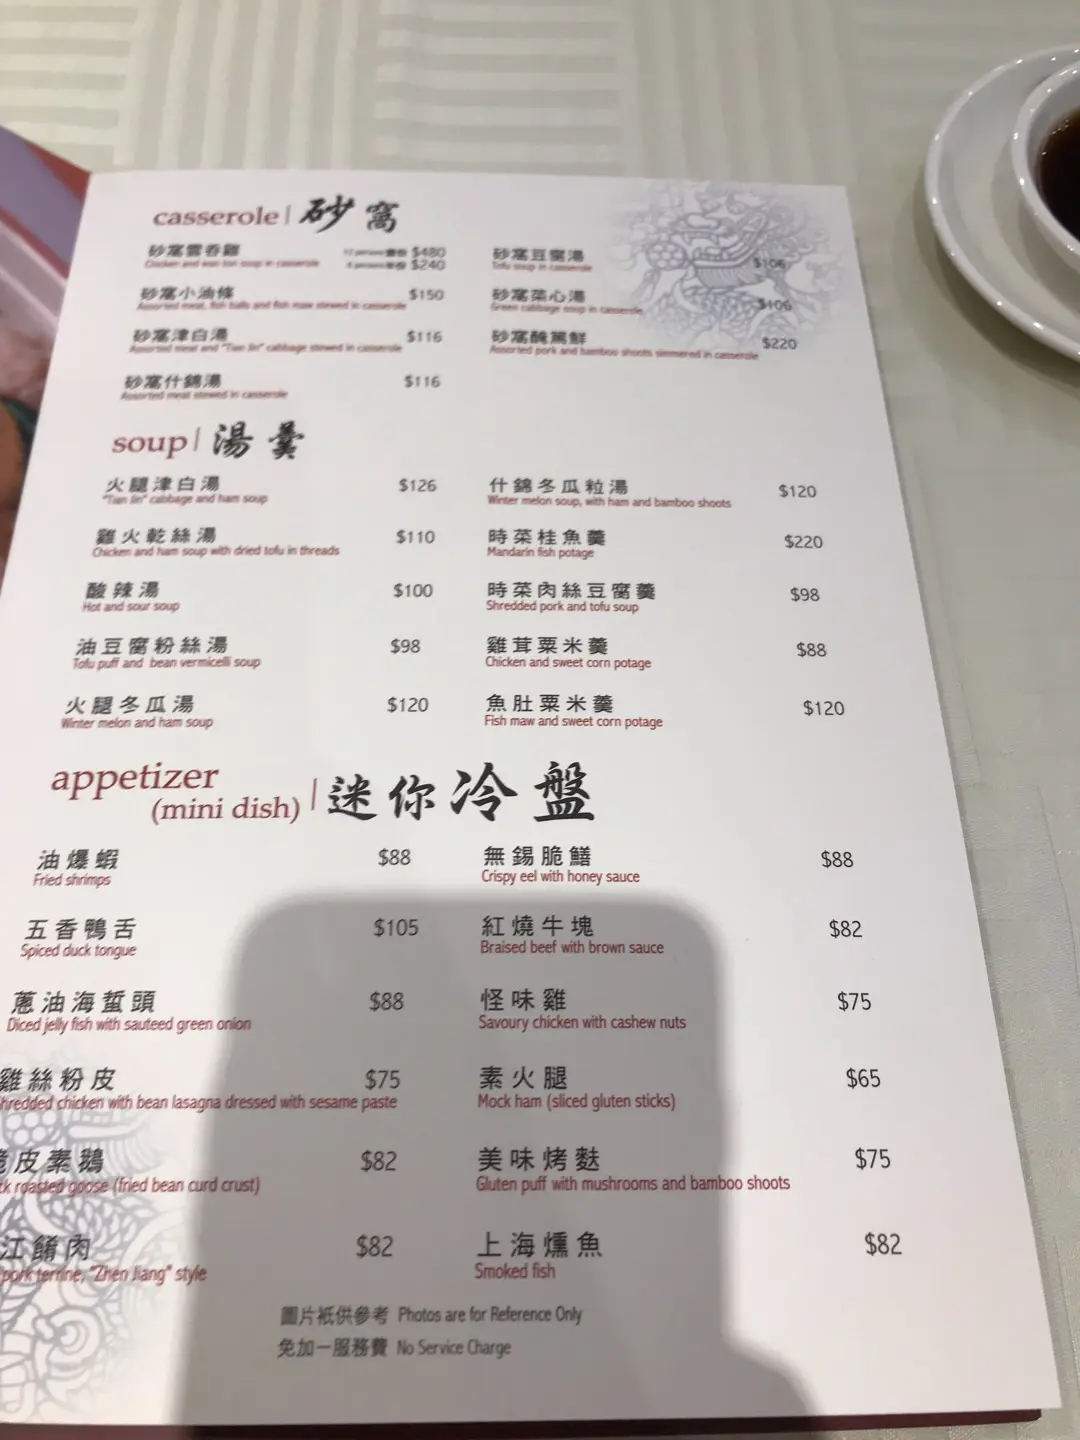 casserole | 砂窩
砂窩雲吞雞 $480
Chicken and wan ton soup in casserole $240
砂窩豆腐湯 $106
Tofu soup in casserole
砂窩小油條 $150
Assorted meat, fish balls and fish maw stewed in casserole
砂窩菜心湯 $106
Green cabbage soup in casserole
砂窩津白湯 $116
Assorted meat and "Tian Jin" cabbage stewed in casserole
砂窩醃篤鮮 $220
Assorted pork and bamboo shoots simmered in casserole
砂窩什錦湯 $116
Assorted meat stewed in casserole
soup | 湯羹
火腿津白湯 $126
"Tian Jin" cabbage and ham soup
什錦冬瓜粒湯 $120
Winter melon soup, with ham and bamboo shoots
雞火乾絲湯 $110
Chicken and ham soup with dried tofu in threads
時菜桂魚羹 $220
Mandarin fish potage
酸辣湯 $100
Hot and sour soup
時菜肉絲豆腐羹 $98
Shredded pork and tofu soup
油豆腐粉絲湯 $98
Tofu puff and bean vermicelli soup
雞茸粟米羹 $88
Chicken and sweet corn potage
火腿冬瓜湯 $120
Winter melon and ham soup
魚肚粟米羹 $120
Fish maw and sweet corn potage
appetizer
(mini dish) | 迷你冷盤
油爆蝦 $88
Fried shrimps
無錫脆鱔 $88
Crispy eel with honey sauce
五香鴨舌 $105
Spiced duck tongue
紅燒牛塊 $82
Braised beef with brown sauce
蔥油海蜇頭 $88
Diced jelly fish with sauteed green onion
怪味雞 $75
Savoury chicken with cashew nuts
雞絲粉皮 $75
hredded chicken with bean lasagna dressed with sesame paste
素火腿 $65
Mock ham (sliced gluten sticks)
皮素鵝 $82
ck roasted goose (fried bean curd crust)
美味烤麩 $75
Gluten puff with mushrooms and bamboo shoots
江餚肉 $82
pork terrine, "Zhen Jiang" style
上海燻魚 $82
Smoked fish
圖片祇供參考 Photos are for Reference Only
免加一服務費 No Service Charge